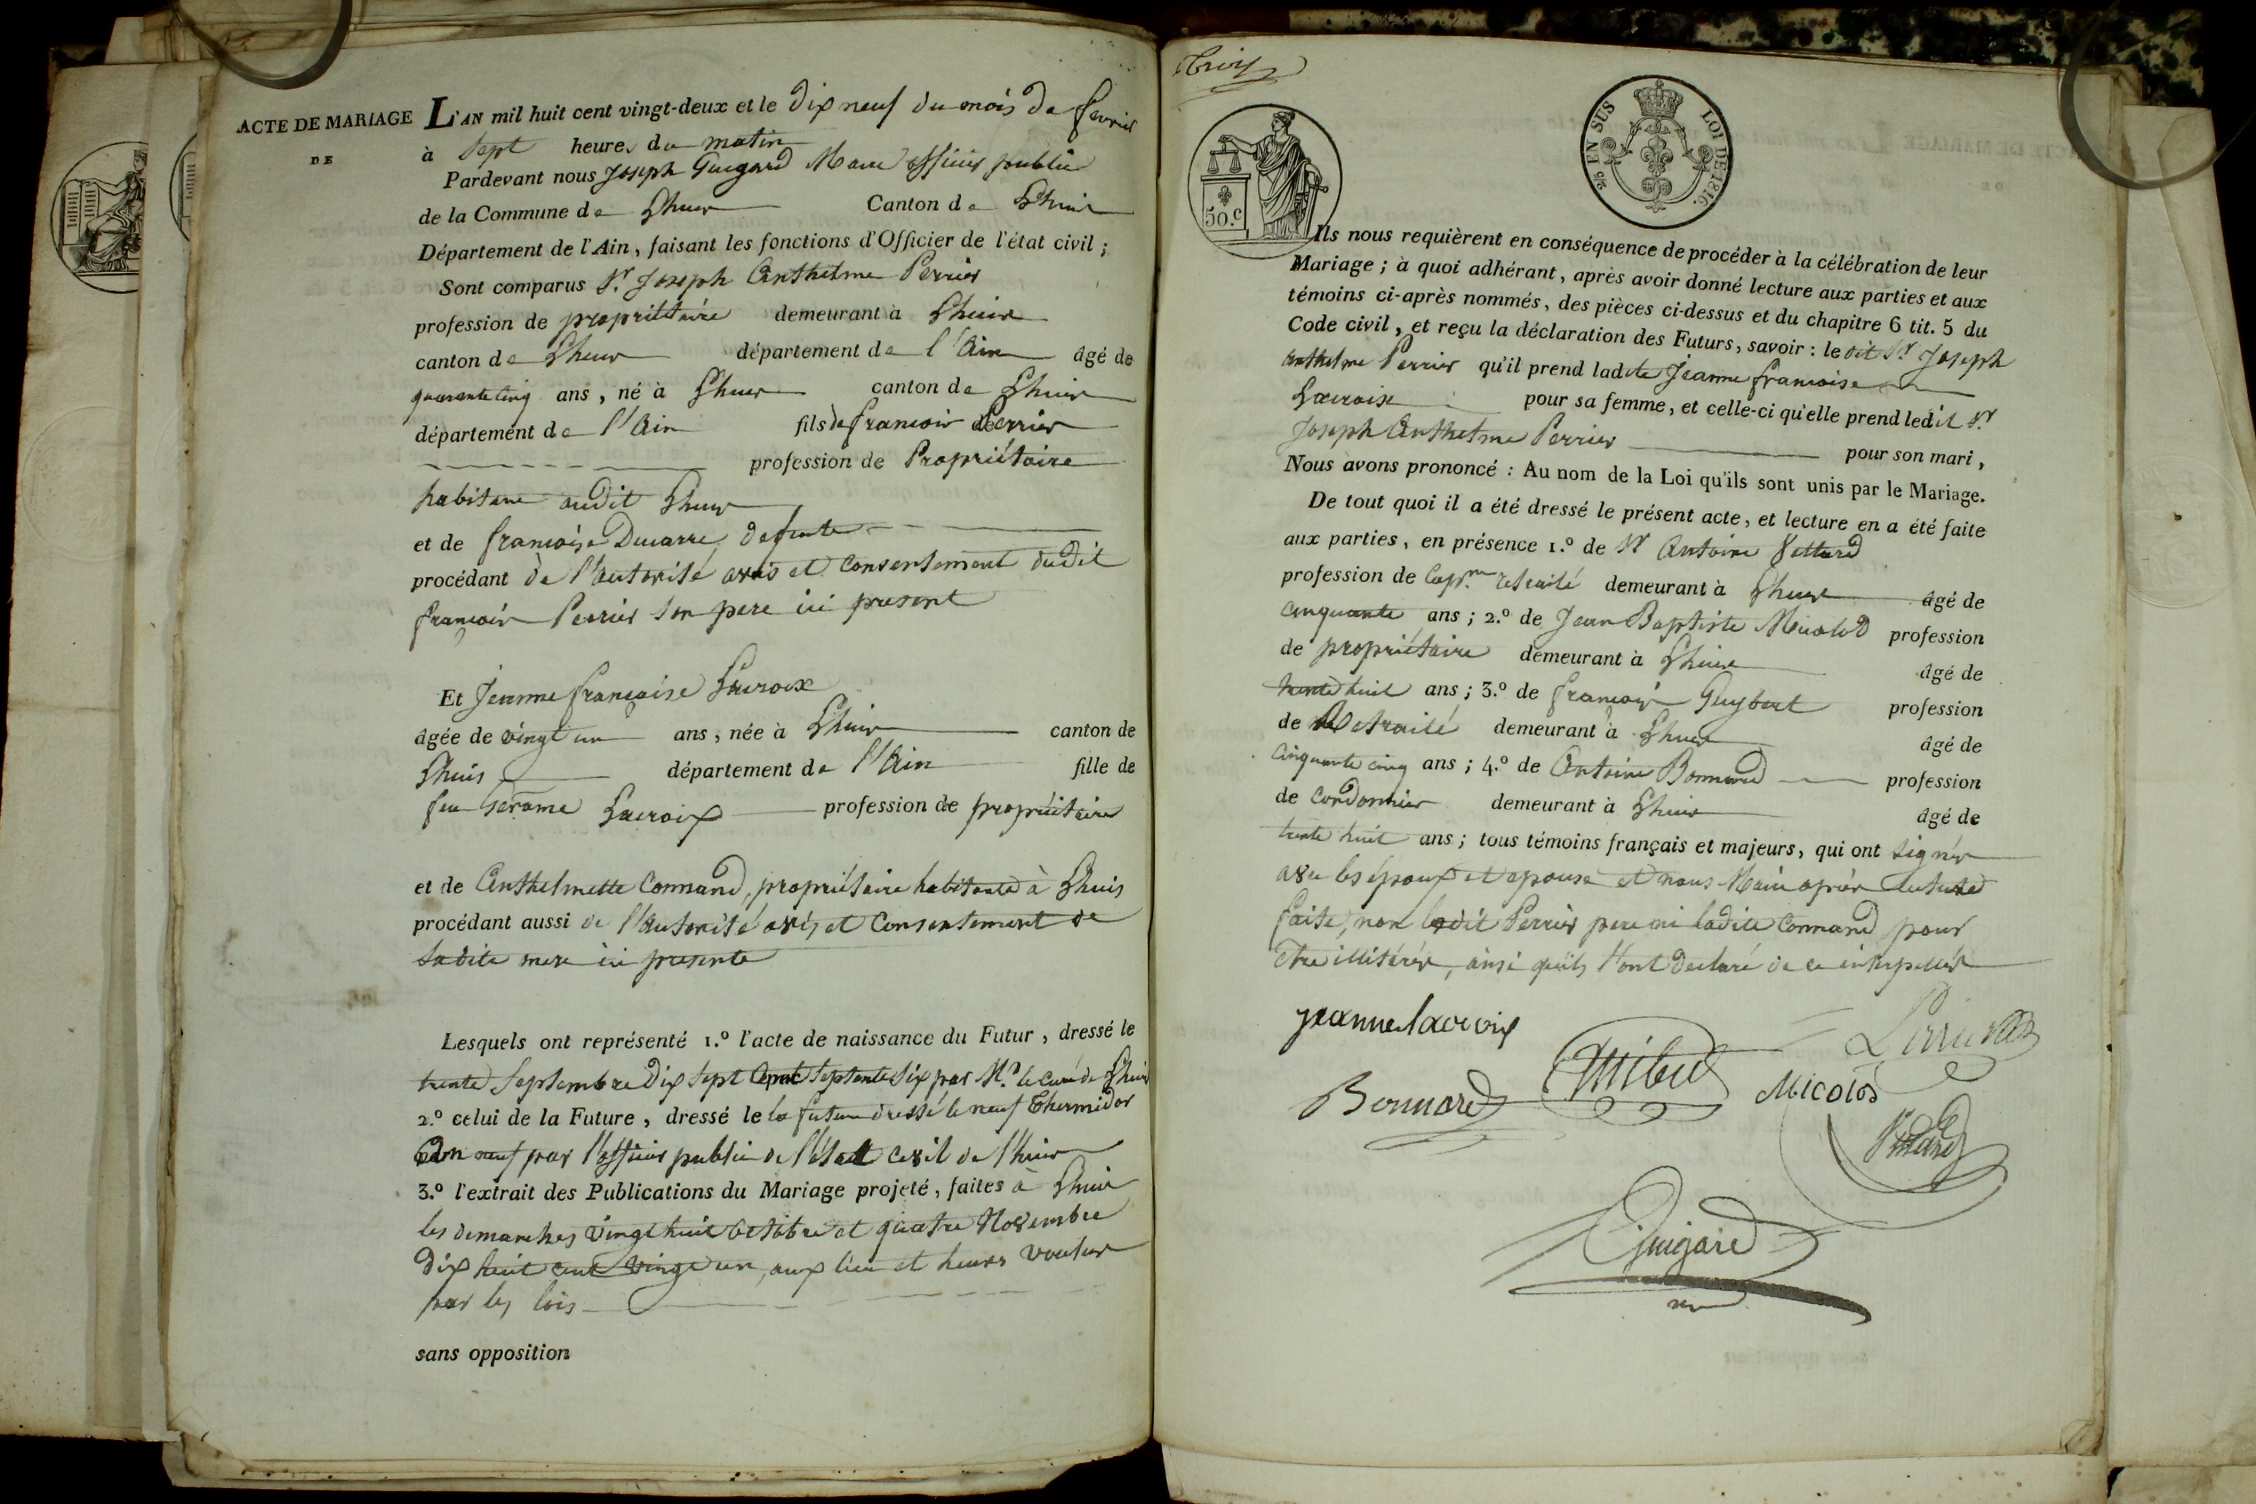 ACTE DE MARIAGE
DE
L'AN mil huit cent vingt-deux et le dix neuf du mois de fevrier
à sept heures du matin
Pardevant nous Joseph Guigard Maire officier public
de la Commune de Lhuis Canton de Lhuis
Département de l'Ain, faisant les fonctions d'Officier de l'état civil ;
Sont comparus Sr. Joseph Anthelme Perrier
profession de propriétaire demeurant à Lhuis
canton de Lhuis département de l'Ain âgé de
quarante cinq ans, né à Lhuis canton de Lhuis
département de l'Ain fils de françois Perrier
profession de Propriétaire
habitant audit Lhuis
et de françoise Ducarre, defunte
procédant de l'autorité avis et consentement dudit
françois Perrier son pere ici present
Et Jeanne françoise Lacroix
âgée de vingt un ans, née à Lhuis canton de
Lhuis département de l'Ain fille de
feu Gerome Lacroix profession de propriétaire
et de Anthelmette Connand, propriétaire habitante à Lhuis
procédant aussi de l'autorité avis et consentement de
ladite mere ici presente
Lesquels ont représenté 1.º l'acte de naissance du Futur, dressé le
trente septembre dix sept cent septente six par Mr. le curé de Lhuis
2.º celui de la Future, dressé le la future dressé le neuf thermidor
an neuf par l'officier public de l'état civil de Lhuis
3.º l'extrait des Publications du Mariage projeté, faites à Lhuis
les dimanches vingt huit octobre et quatre Novembre
dix huit cent vingt un, aux lieu et heures voulus
par les lois
sans opposition
trois
50.c
2/5 EN SUS LOI DE 1816.
Ils nous requièrent en conséquence de procéder à la célébration de leur
Mariage ; à quoi adhérant, après avoir donné lecture aux parties et aux
témoins ci-après nommés, des pièces ci-dessus et du chapitre 6 tit. 5 du
Code civil, et reçu la déclaration des Futurs, savoir : le dit Sr Joseph
anthelme Perrier qu'il prend ladite Jeanne françoise
Lacroix pour sa femme, et celle-ci qu'elle prend ledit Sr.
Joseph Anthelme Perrier pour son mari,
Nous avons prononcé : Au nom de la Loi qu'ils sont unis par le Mariage.
De tout quoi il a été dressé le présent acte, et lecture en a été faite
aux parties, en présence 1.º de Sr Antoine Vettard
profession de retraité demeurant à Lhuis âgé de
cinquante ans ; 2.º de Jean Baptiste Micolod profession
de propriétaire demeurant à Lhuis âgé de
trente huit ans ; 3.º de françois Guybert profession
de Retraité demeurant à Lhuis âgé de
cinquante cinq ans ; 4.º de Antoine Bonnard profession
de cordonnier demeurant à Lhuis âgé de
trente huit ans ; tous témoins français et majeurs, qui ont signés
avec les époux et epouse et nous Maire après lecture
faite, non ledit Perrier pere ni ladite Connand pour
etre illitérés, ainsi qu'ils l'ont declaré de ce interpellés
jeanne lacroix
Perrier
Bonnard
Micolod
Vettard
Guigard